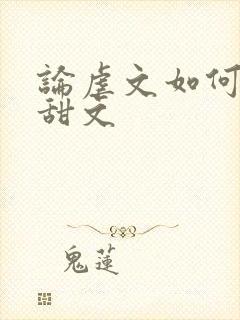 論虐文如何
甜文
鬼蓮